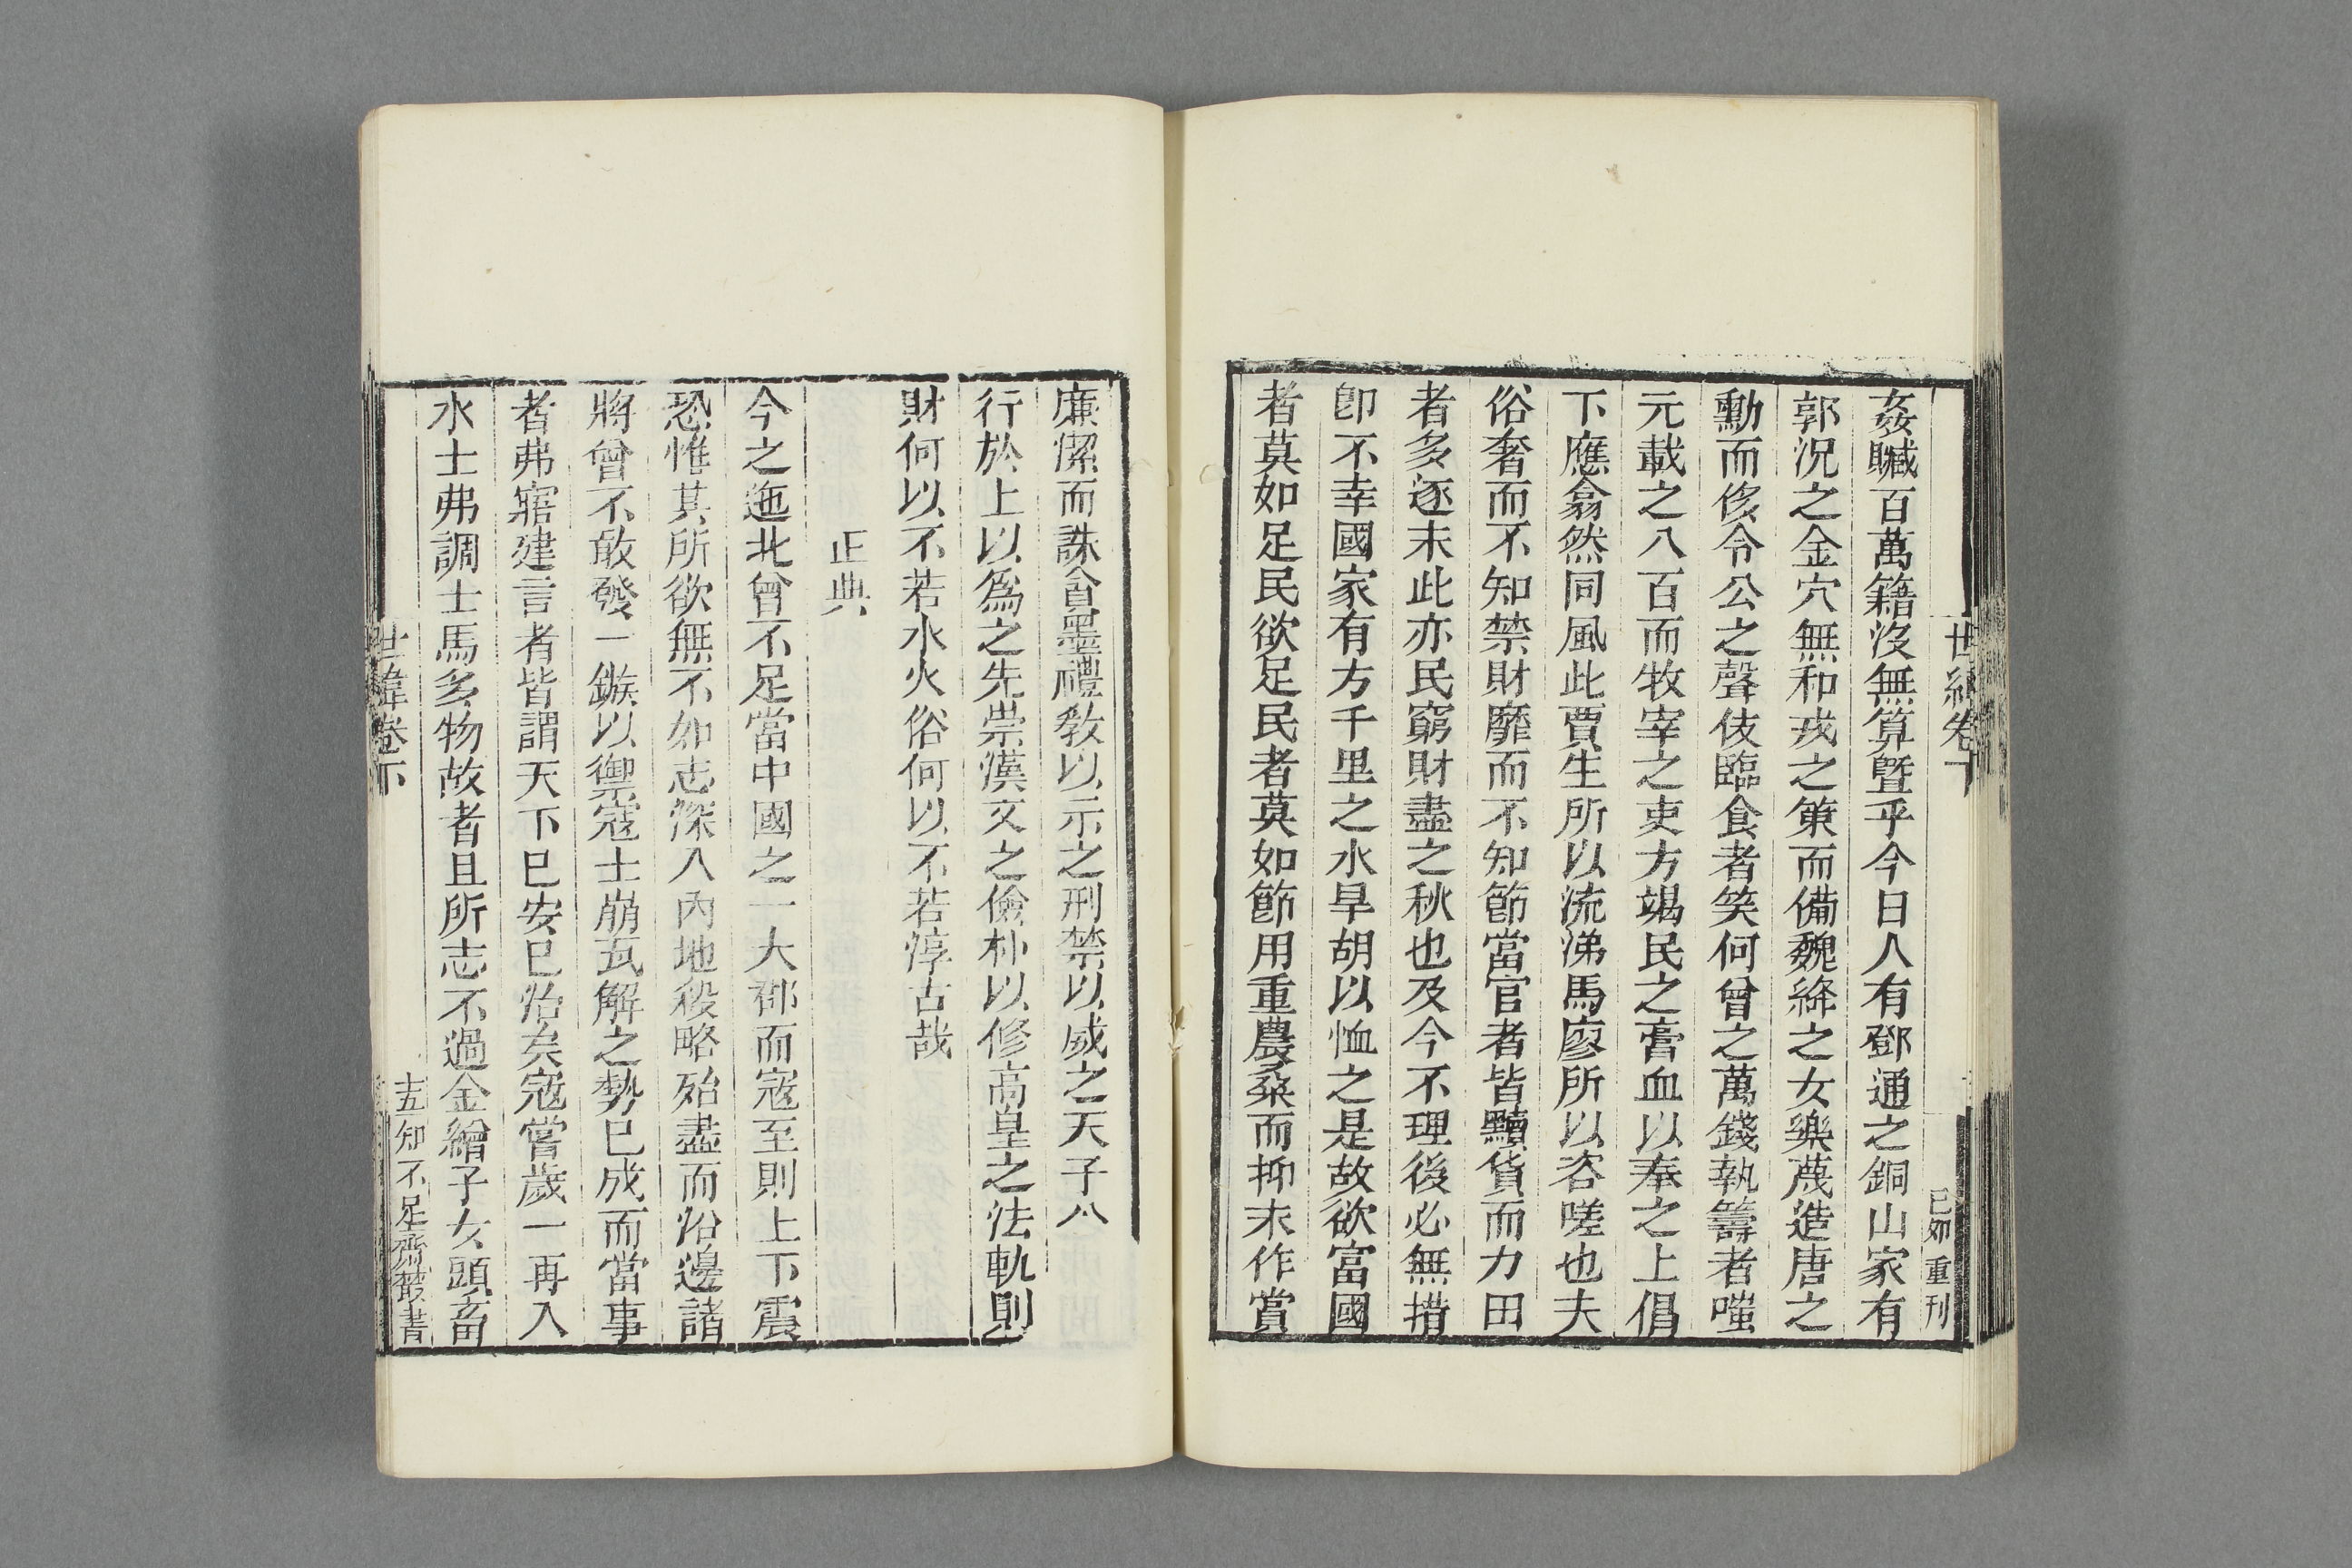 世緯卷下
己卯重刊
姦贓百萬籍沒無算暨乎今日人有鄧通之銅山家有
郭況之金穴無和戎之策而備魏絳之女樂蔑造唐之
勳而侈令公之聲伎臨食者笑何曾之萬錢執籌者嗤
元載之八百而牧宰之吏方竭民之膏血以奉之上倡
下應翕然同風此賈生所以流涕馬廖所以咨嗟也夫
俗奢而不知禁財靡而不知節當官者皆黷貨而力田
者多逐末此亦民窮財盡之秋也及今不理後必無措
卽不幸國家有方千里之水旱胡以恤之是故欲富國
者莫如足民欲足民者莫如節用重農桑而抑末作賞
廉潔而誅貪墨禮敎以示之刑禁以威之天子八
行於上以爲之先崇漢文之儉朴以修高皇之法軌則
財何以不若水火俗何以不若淳古哉
正典
今之迤北曾不足當中國之一大郡而寇至則上下震
恐惟其所欲無不如志深入內地殺略殆盡而沿邊諸
將曾不敢發一鏃以禦寇土崩瓦解之勢已成而當事
者弗寤建言者皆謂天下已安已治矣寇嘗歲一再入
水土弗調士馬多物故者且所志不過金繒子女頭畜
世緯卷下
十五
知不足齋叢書